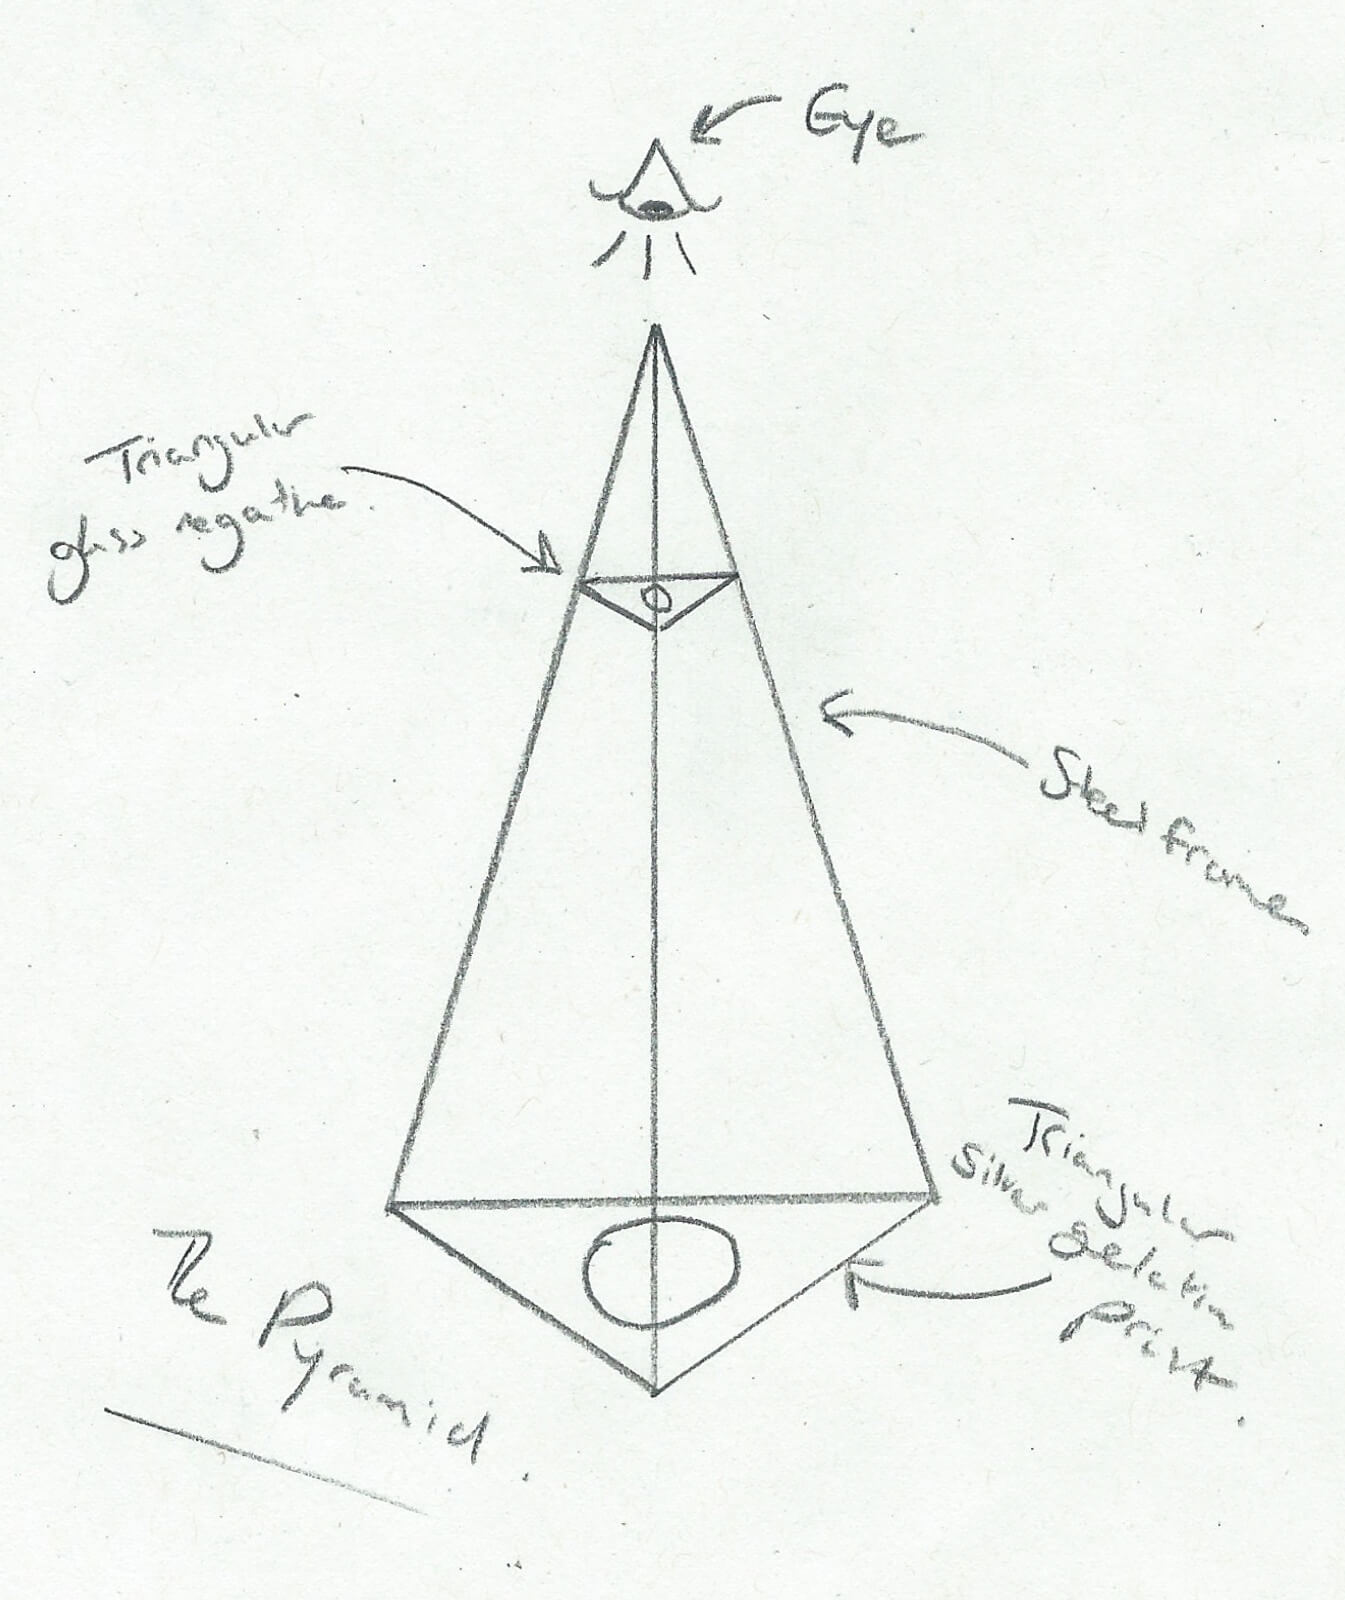 Eye
Triangular
glass negative.
Steel frame
Triangular
Silver Gelatin
Print.
The Pyramid.